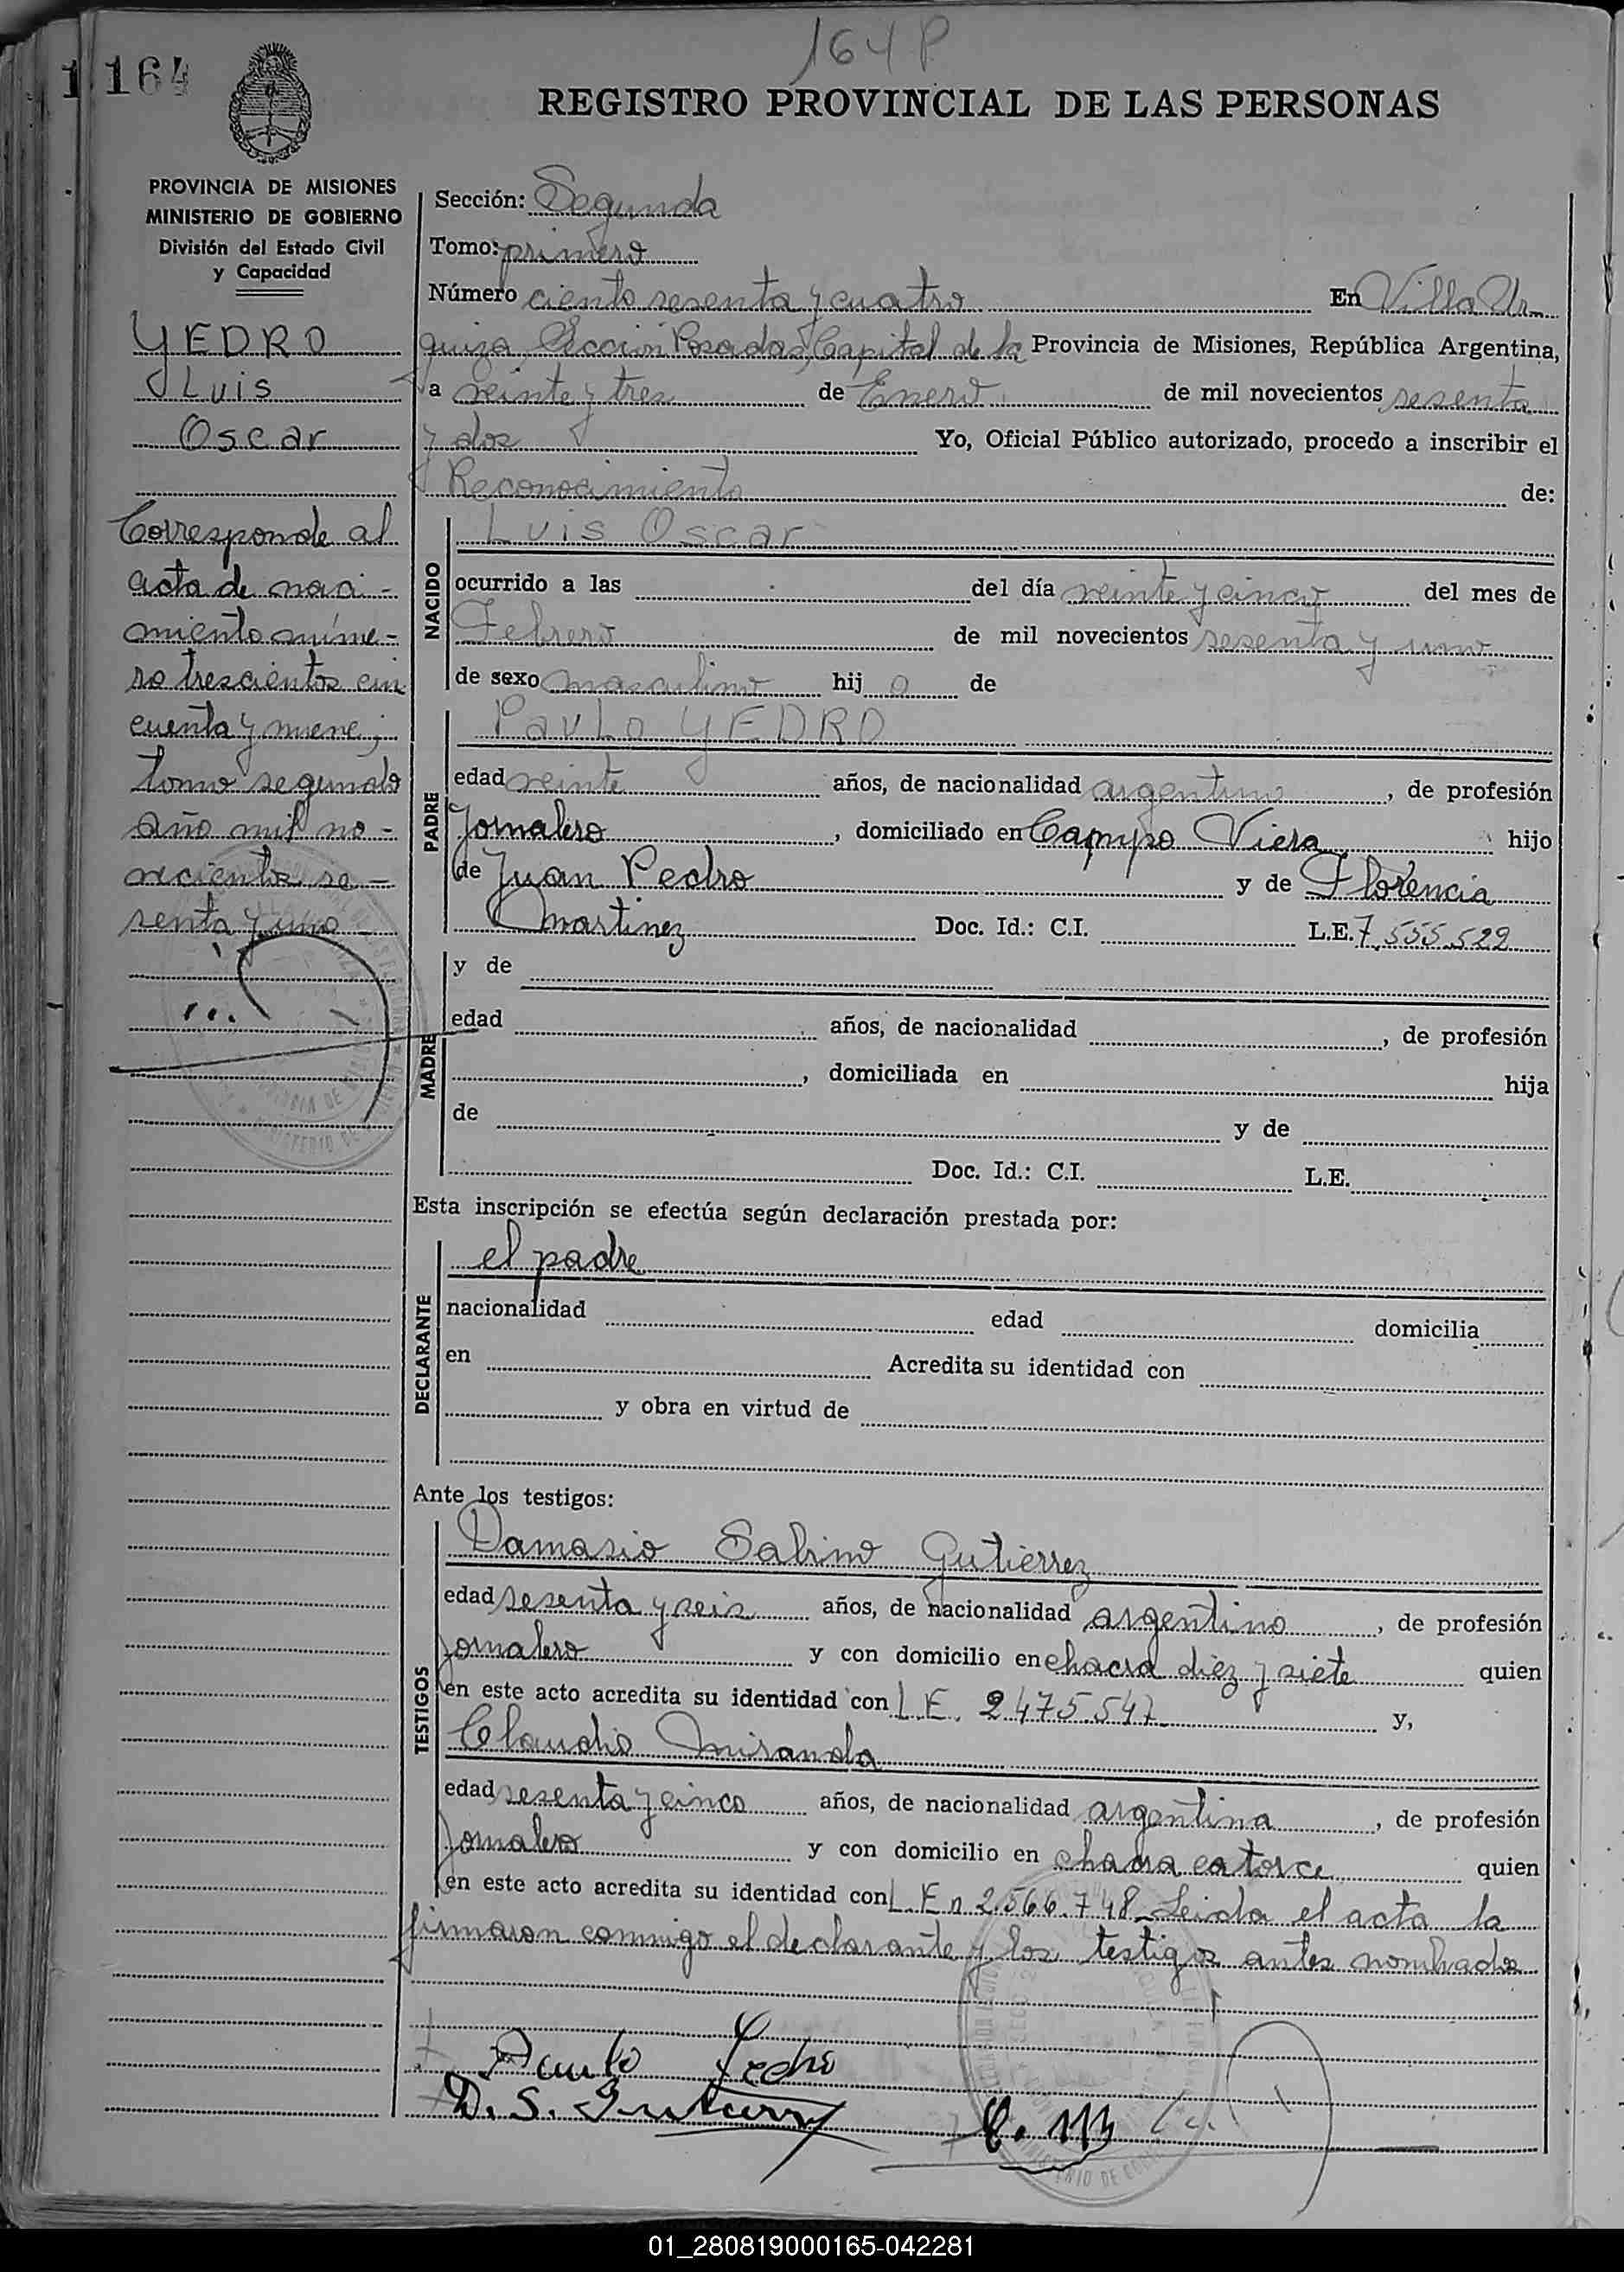 164 P
1 164
REGISTRO PROVINCIAL DE LAS PERSONAS
PROVINCIA DE MISIONES
MINISTERIO DE GOBIERNO
División del Estado Civil
y Capacidad
YEDRO
Luis
Oscar
Corresponde al
acta de naci-
miento núme-
ro trescientos cin
cuenta y nueve;
tomo segundo
año mil no-
vecientos se-
senta y uno
Sección: Segunda
Tomo: primero
Número ciento sesenta y cuatro En Villa Ur
quiza, Sección Posadas, Capital de la Provincia de Misiones, República Argentina,
a veinte y tres de Enero de mil novecientos sesenta
y dos Yo, Oficial Público autorizado, procedo a inscribir el
Reconocimiento de:
NACIDO
Luis Oscar
ocurrido a las del día veinte y cinco del mes de
Febrero de mil novecientos sesenta y uno
de sexo masculino hij o de
PADRE
Paulo YEDRO
edad veinte años, de nacionalidad argentino, de profesión
Jornalero, domiciliado en Campo Viera hijo
de Juan Pedro y de Florencia
Martinez Doc. Id.: C.I. L.E. 7.555.522
MADRE
y de
edad años, de nacionalidad , de profesión
, domiciliada en hija
de y de
Doc. Id.: C.I. L.E.
Esta inscripción se efectúa según declaración prestada por:
DECLARANTE
el padre
nacionalidad edad domicilia
en Acredita su identidad con
y obra en virtud de
Ante los testigos:
TESTIGOS
Damasio Sabino Gutierrez
edad sesenta y seis años, de nacionalidad argentino, de profesión
jornalero y con domicilio en chacra diez y siete quien
en este acto acredita su identidad con L.E. 2.475.547 y,
Claudio Miranda
edad sesenta y cinco años, de nacionalidad argentina, de profesión
Jornalero y con domicilio en chacra catorce quien
en este acto acredita su identidad con L.E n 2.566.748 Leida el acta la
firmaron conmigo el declarante y los testigos antes nombrados
Paulo Yedro
D. S. Gutierrez
01_280819000165-042281